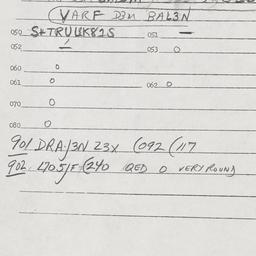 (VARF D3N BAL3N
050 S+TRUUK81S 051 —
052 — 053 O
060 O
061 O 062 O
070 O
080 O
901 DRA/3N 23X (092 (117
902 L705/F (240 QED O VERY ROUND